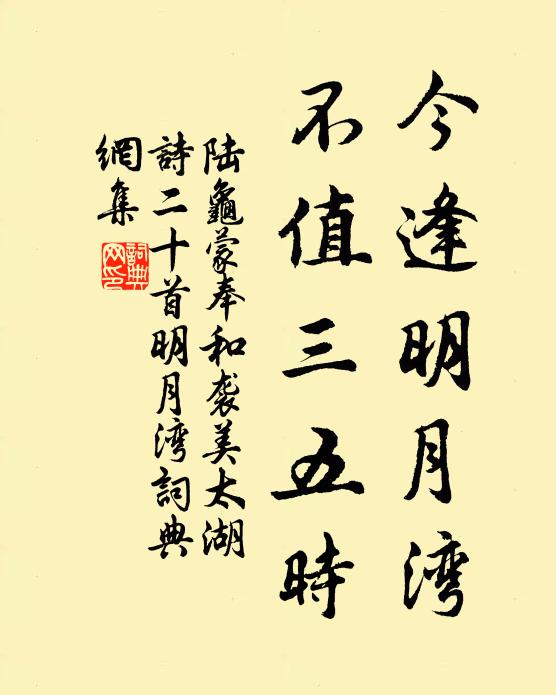 今逢明月湾
不值三五時
陆龜蒙奉和袭美太湖
詩二十首明月湾詞典
網集
詞典
网印